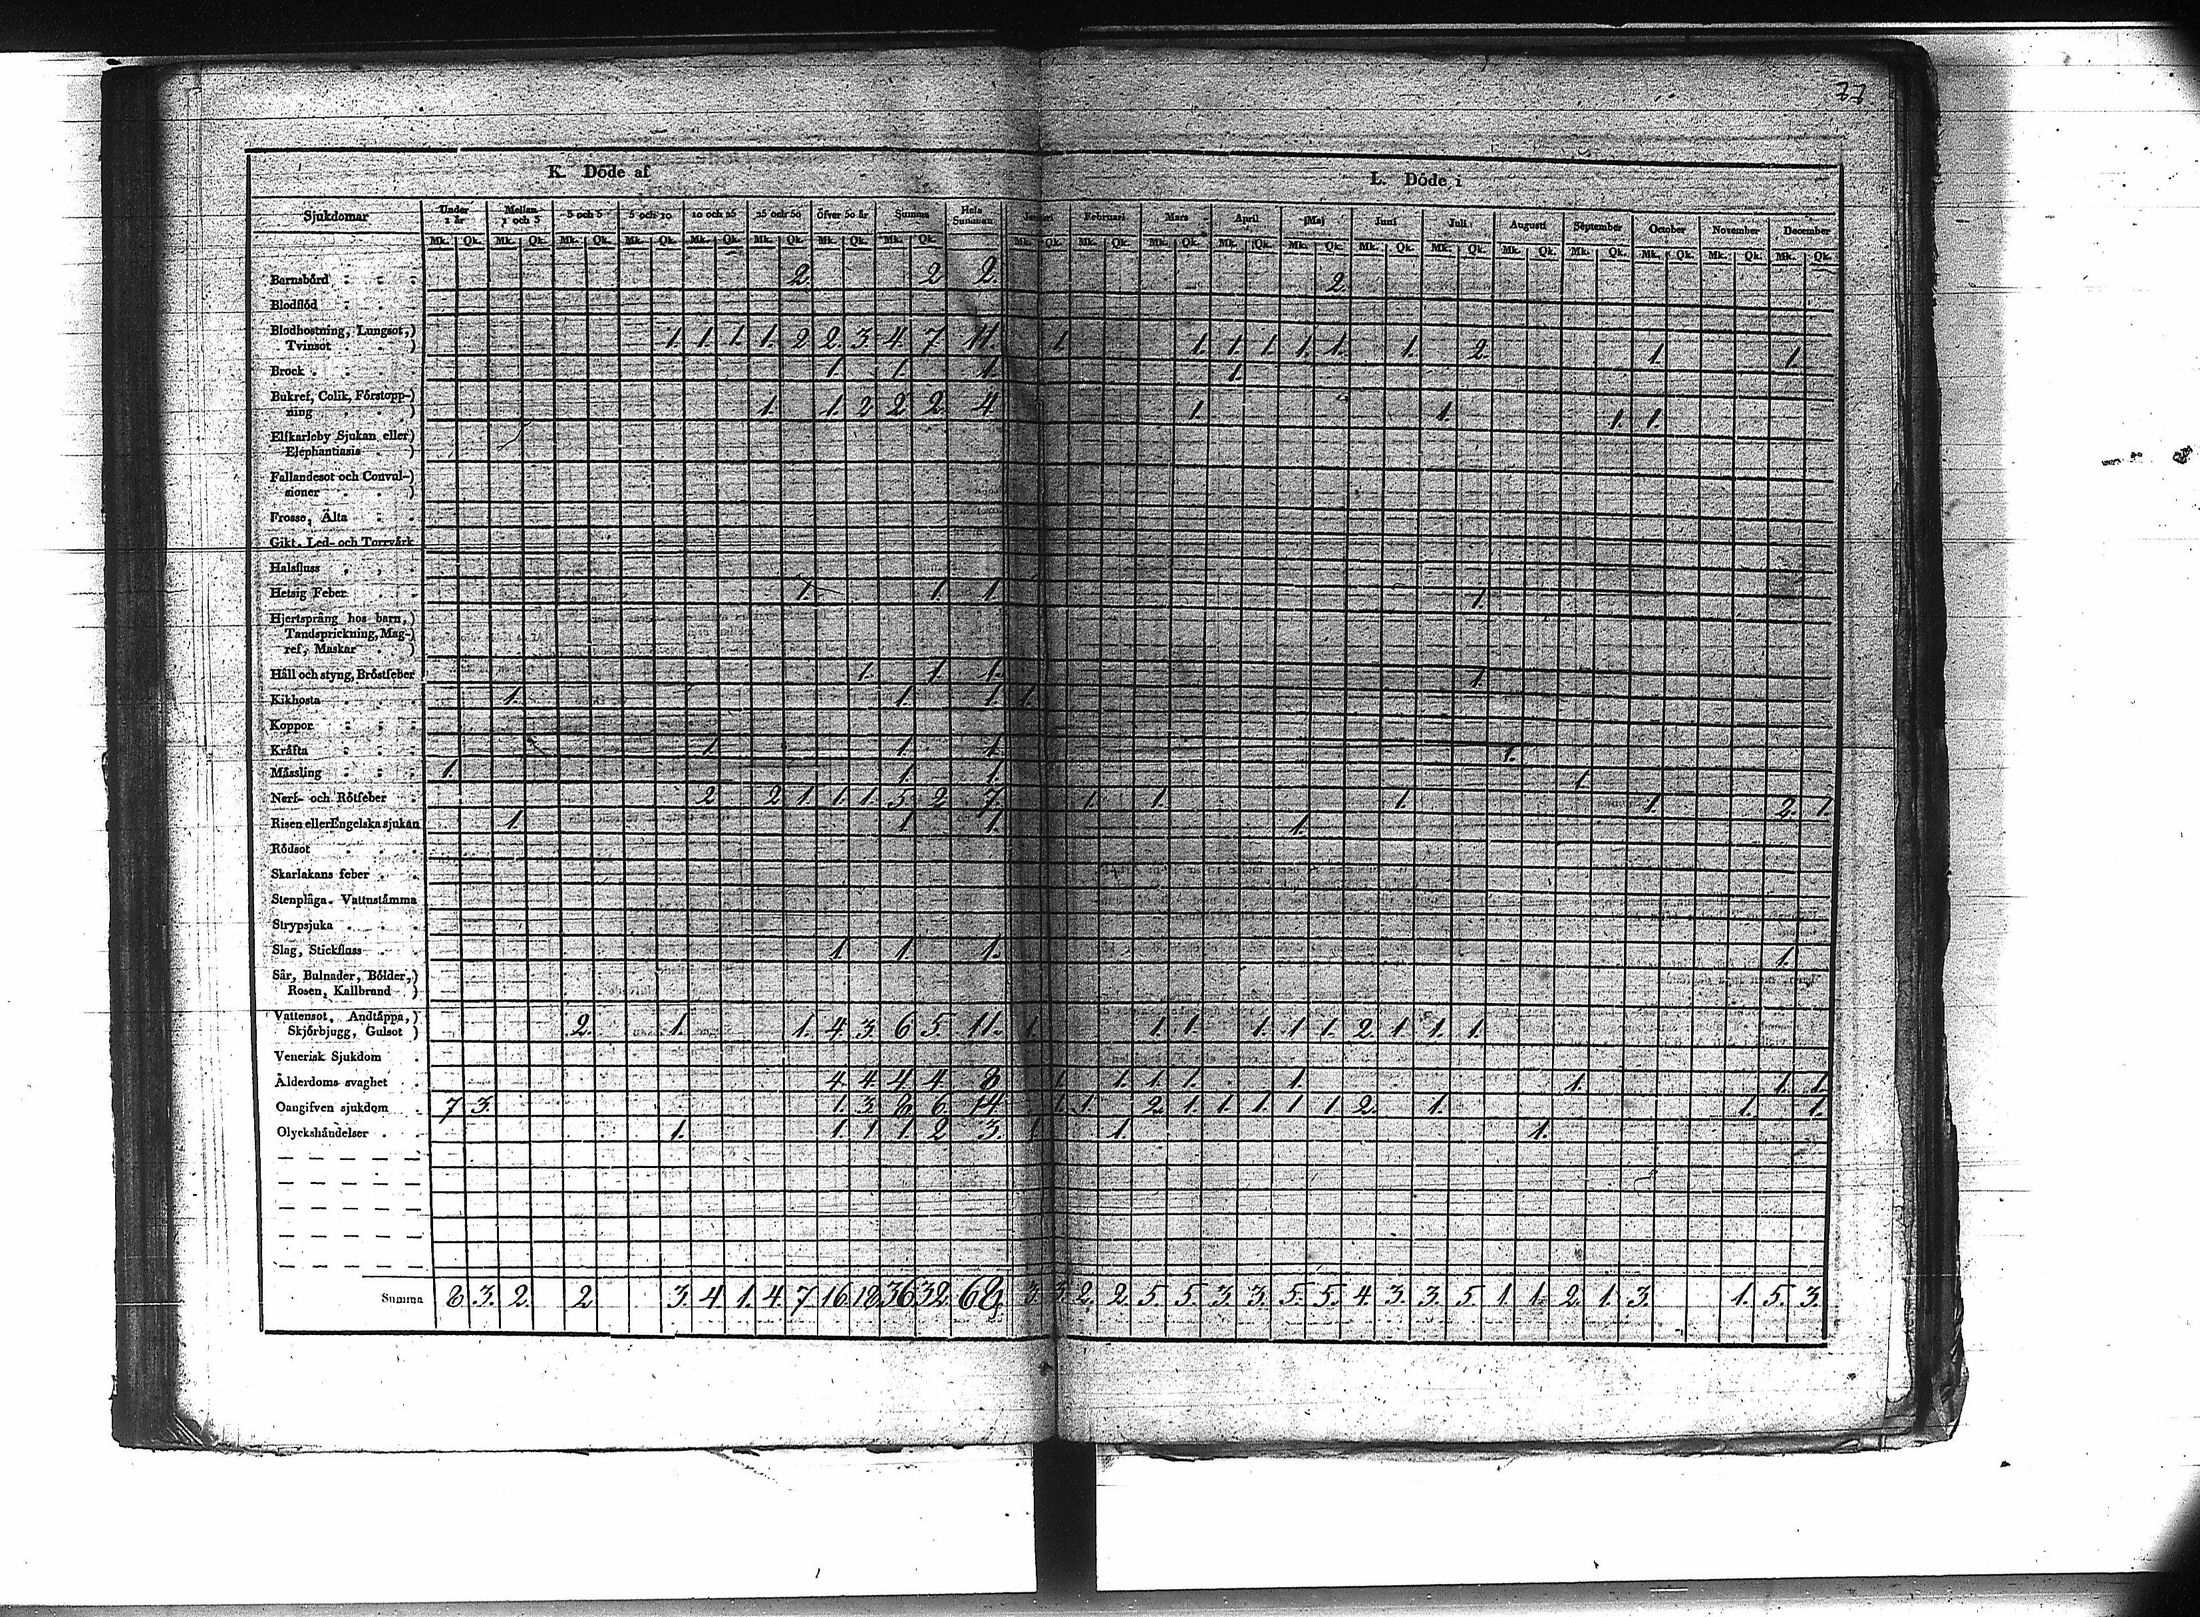 77
K. Döde af
L. Döde i
Sjukdomar Under 1 år Mellan 1 och 3 3 och 5 5 och 10 10 och 25 25 och 50 Öfver 50 år Summa Hela Summan Januari Februari Mars April Maj Juni Juli Augusti September October November December
Mk. Qk. Mk. Qk. Mk. Qk. Mk. Qk. Mk. Qk. Mk. Qk. Mk. Qk. Mk. Qk. Mk. Qk. Mk. Qk. Mk. Qk. Mk. Qk. Mk. Qk. Mk. Qk. Mk. Qk. Mk. Qk. Mk. Qk. Mk. Qk. Mk. Qk. Mk. Qk.
Barnsbörd 2. 2 2. 2.
Blodflöd
Blodhostning, Lungsot,)
Tvinsot ) 1. 1. 1. 1. 2 2. 3 4. 7. 11. 1. 1. 1. 1. 1. 1. 1. 2. 1. 1.
Brock 1. 1. 1. 1.
Bukref, Colik, Förstopp-)
ning ) 1. 1. 2 2 2. 4. 1. 1. 1. 1.
Elfkarleby Sjukan eller)
Elephantiasis )
Fallandesot och Convul-)
sioner )
Frosse, Älta
Gikt, Led- och Torrvärk
Halsfluss
Hetsig Feber 1. 1. 1. 1.
Hjertsprång hos barn,)
Tandsprickning, Mag-)
ref, Maskar )
Håll och styng, Bröstfeber 1. 1. 1. 1.
Kikhosta 1. 1. 1. 1.
Koppor
Kräfta 1. 1. 1. 1.
Mässling 1. 1. 1. 1.
Nerf- och Rötfeber 2 2. 1. 1. 1. 5. 2. 7. 1. 1. 1. 1. 2. 1.
Risen eller Engelska sjukan 1. 1. 1. 1.
Rödsot
Skarlakans feber
Stenplåga. Vattnstämma
Strypsjuka
Slag, Stickfluss 1. 1. 1. 1.
Sår, Bulnader, Bölder,)
Rosen, Kallbrand )
Vattensot, Andtäppa,)
Skjörbjugg, Gulsot ) 2. 1. 1. 4. 3. 6. 5. 11. 1. 1. 1. 1. 1. 1. 2. 1. 1. 1.
Venerisk Sjukdom
Ålderdoms svaghet 4. 4. 4. 4. 8 1. 1. 1. 1. 1. 1. 1. 1.
Oangifven sjukdom 7 3. 1. 3. 8. 6. 14. 1. 1. 2. 1. 1. 1. 1. 1. 2. 1. 1. 1.
Olyckshändelser 1. 1. 1. 1. 2 3. 1. 1. 1.
Summa 8 3. 2. 2 3. 4 1. 4. 7. 16 18. 36 32. 68. 3. 3. 2. 2. 5. 5. 3. 3. 5. 5. 4. 3. 3. 5. 1. 1. 2. 1. 3. 1. 5. 3.